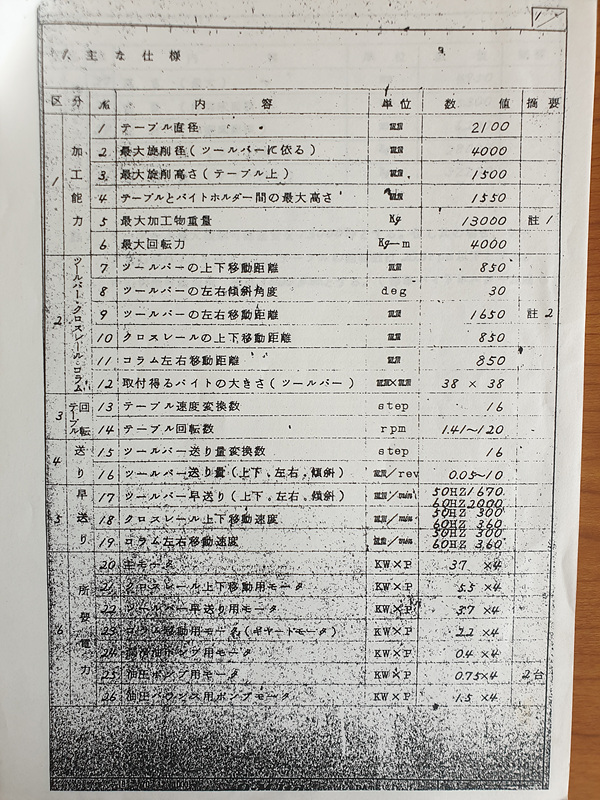 1
1. 主な仕様
区分 № 内容 単位 数値 摘要
1 加工能力
1 テーブル直径 mm 2100
2 最大旋削径(ツールバーに依る) mm 4000
3 最大旋削高さ(テーブル上) mm 1500
4 テーブルとバイトホルダー間の最大高さ mm 1550
5 最大加工物重量 Kg 13000 註1
6 最大回転力 Kg-m 4000
2 ツールバー、クロスレール、コラム
7 ツールバーの上下移動距離 mm 850
8 ツールバーの左右傾斜角度 deg 30
9 ツールバーの左右移動距離 mm 1650 註2
10 クロスレールの上下移動距離 mm 850
11 コラム左右移動距離 mm 850
12 取付得るバイトの大きさ(ツールバー) mm×mm 38 × 38
3 テーブル回転
13 テーブル速度変換数 step 16
14 テーブル回転数 rpm 1.41~120
4 送り
15 ツールバー送り量変換数 step 16
16 ツールバー送り量(上下、左右、傾斜) mm/rev 0.05~10
5 早送り
17 ツールバー早送り(上下、左右、傾斜) mm/min 50HZ 1670
60HZ 2000
18 クロスレール上下移動速度 mm/min 50HZ 300
60HZ 360
19 コラム左右移動速度 mm/min 50HZ 300
60HZ 360
6 所要電力
20 主モータ KW×P 37 ×4
21 クロスレール上下移動用モータ KW×P 5.5 ×4
22 ツールバー早送り用モータ KW×P 3.7 ×4
23 コラム移動用モータ(ギヤードモータ) KW×P 2.2 ×4
24 潤滑油ポンプ用モータ KW×P 0.4 ×4
25 油圧ポンプ用モータ KW×P 0.75×4 2台
26 油圧バランス用ポンプモータ KW×P 1.5 ×4